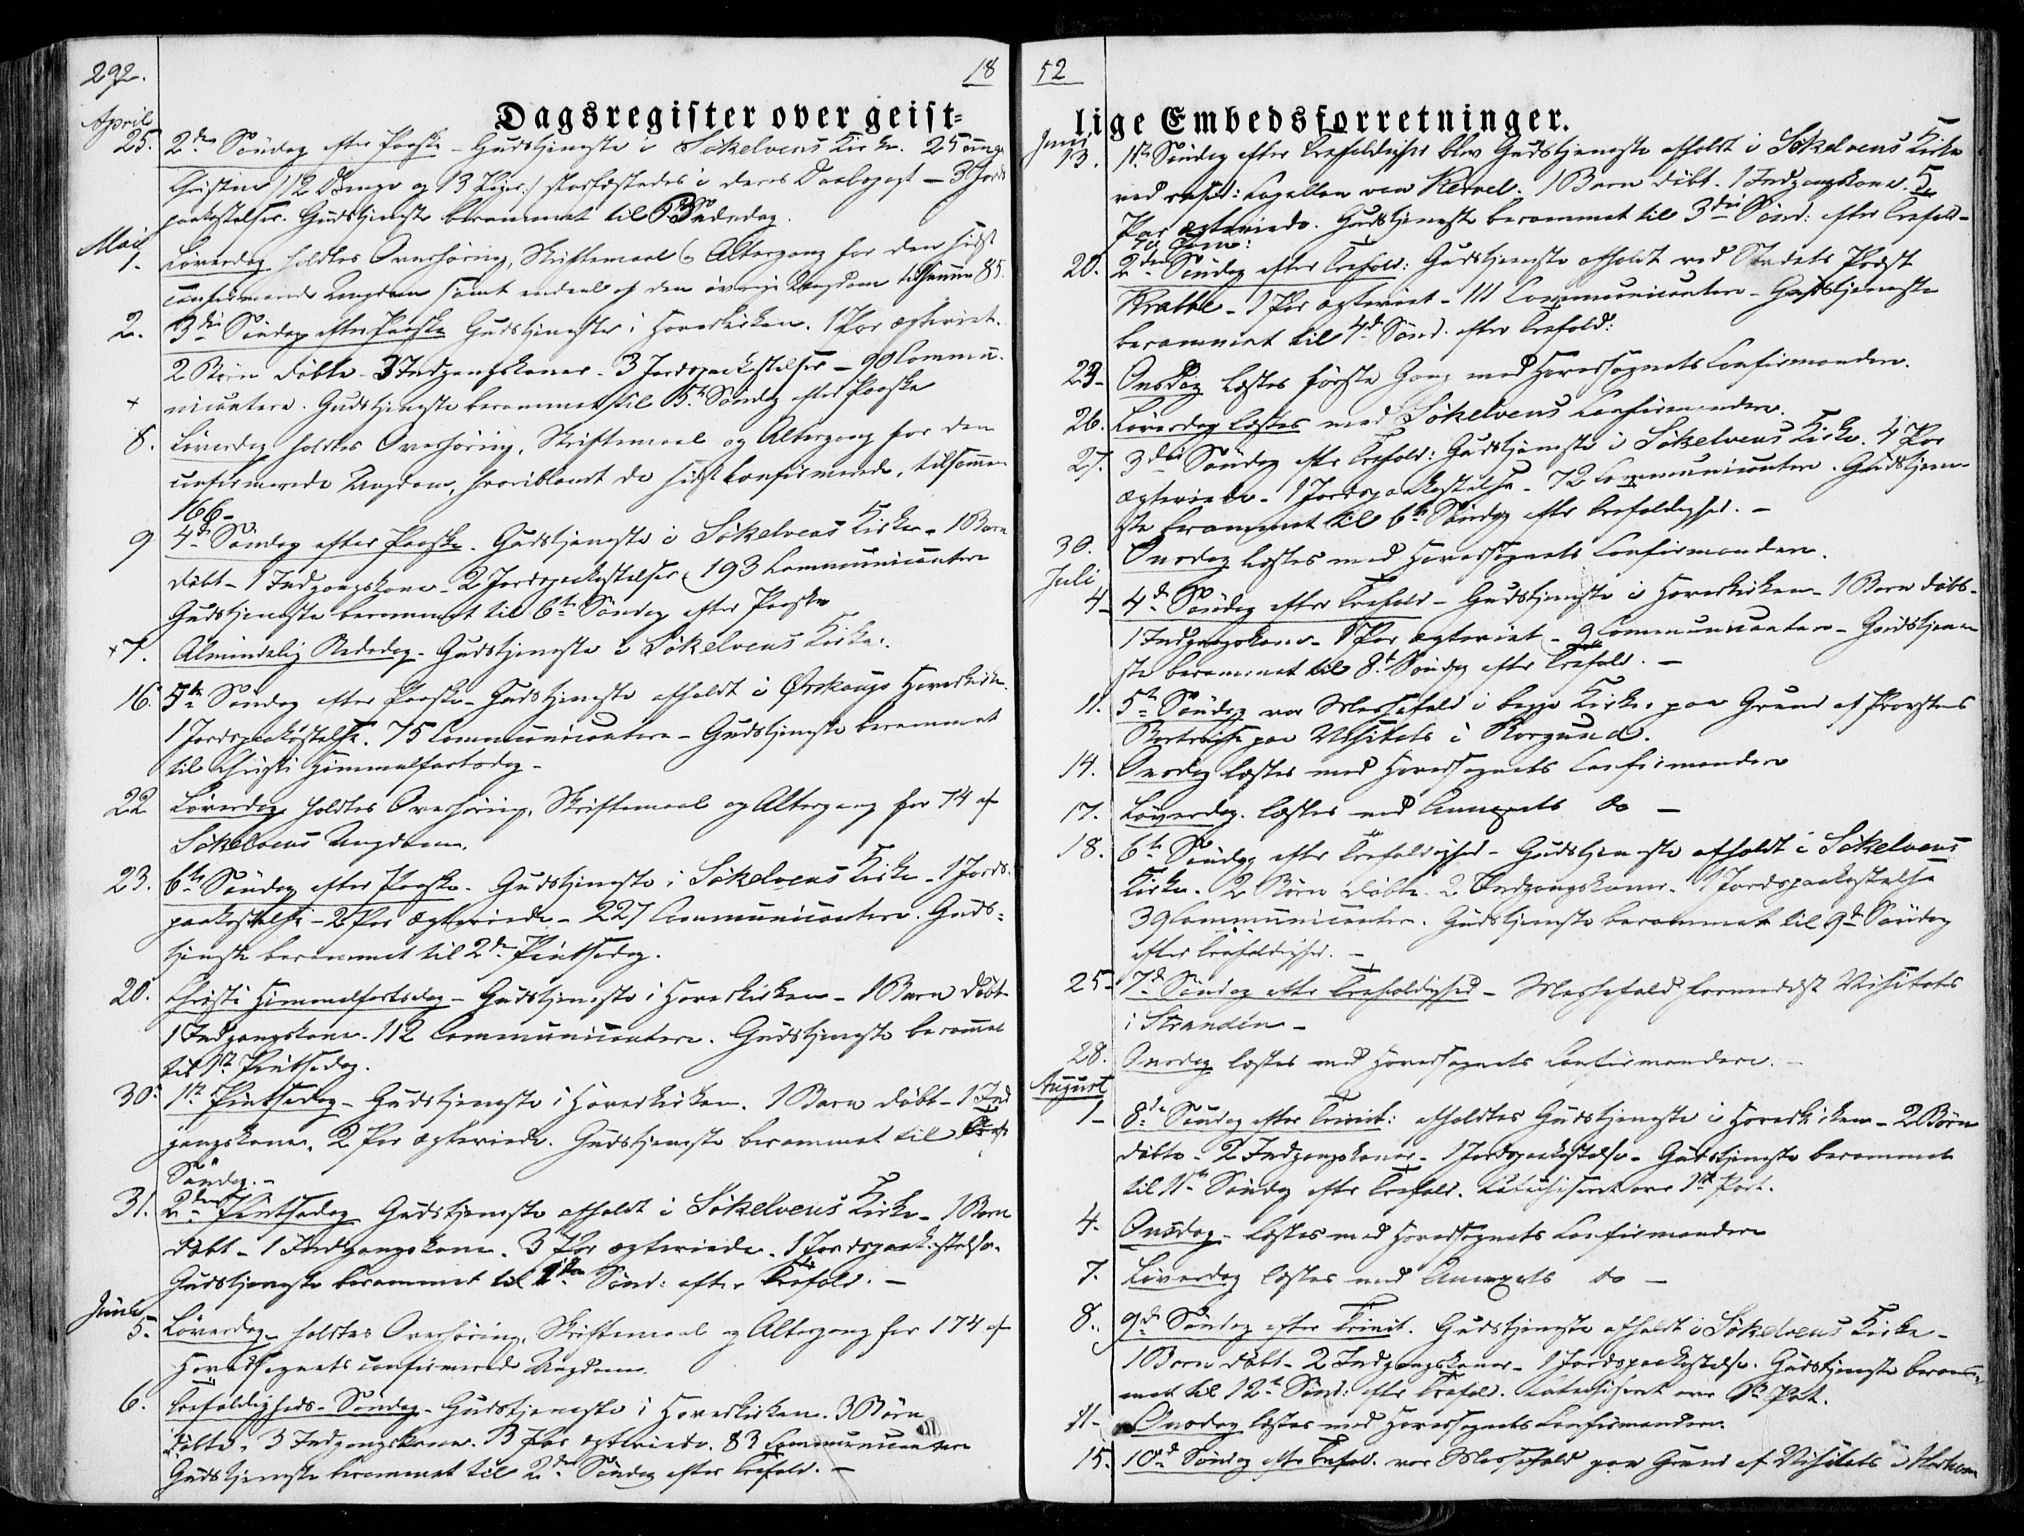 292.
18
Dagsregister over geist-
April
25. 2den Søndag efter Paaske - Gudstjeneste i Søkelvens Kirke. 25 unge
Christne (12 Drenge og 13 Piger) stadfæstedes i deres Daabspagt - 3 Jords
paakastelser. Gudstjeneste berammet til Bededag.
Mai
1. Løverdag holdtes Overhøring, Skriftemaal og Altergang for den sidst
confirmerede Ungdom samt endeel af den øvrige Ungdom tilsammen 85.
2. 3die Søndag efter Paaske Gudstjeneste i Hovedkirken. 1 Par ægteviet.
2 Børn døbte - 3 Indgangskoner - 3 Jordspaakastelser - 90 Commu-
+ nicantere. Gudstjeneste berammet til 5te Søndag efter Paaske
8. Løverdag holdtes Overhøring, Skriftemaal og Altergang for den
confirmerede Ungdom, hvoriblandt de sidst Confirmerede, tilsammen
166 -
9 4de Søndag efter Paaske. Gudstjeneste i Søkelvens Kirke - 1 Barn
døbt - 1 Indgangskone - 2 Jordspaakastelser, 193 Communicantere
Gudstjeneste berammet til 6te Søndag efter Paaske
+ 7. Almindelig Bededag - Gudstjeneste i Søkelvens Kirke.
16. 5te Søndag efter Paaske - Gudstjeneste afholdt i Ørskougs Hovedkirke.
1 Jordspaakastelse. 75 Communicantere - Gudstjeneste berammet
til Christi Himmelfartsdag -
22 Løverdag holdtes Overhøring, Skriftemaal og Altergang for 74 af
Søkelvens Ungdom.
23. 6te Søndag efter Paaske - Gudstjeneste i Søkelvens Kirke - 1 Jords-
paakastelse - 2 Par ægteviede - 227 Communicantere. Guds-
tjeneste berammet til 2den Pintsedag.
20. Christi Himmelfartsdag - Gudstjeneste i Hovedkirken - 1 Barn døbt
1 Indgangskone - 112 Communicantere. Gudstjeneste berammet
til 1ste Pintsedag.
30. 1ste Pintsedag - Gudstjeneste i Hovedkirken. 1 Barn døbt - 1 Ind
gangskone, 2 Par ægteviede. Gudstjeneste berammet til Tref.
Søndag. -
31. 2den Pintsedag Gudstjeneste afholdt i Søkelvens Kirke - 1 Barn
døbt - 1 Indgangskone. 3 Par ægteviede. 1 Jordspaakastelse.
Gudstjeneste berammet til 1ste Sønd: efter Trefold. -
Juni
5. Løverdag holdtes Overhøring, Skriftemaal og Altergang for 174 af
Hovedsognets confirmerede Ungdom.
6. Trefoldigheds-Søndag - Gudstjeneste i Hovedkirken. 3 Børn
døbte, 3 Indgangskoner. 3 Par ægteviede. 83 Communicantere
Gudstjeneste berammet til 2den Søndag efter Trefold. -
52
lige Embedsforretninger.
Juni
13. 1ste Søndag efter Trefoldighed blev Gudstjeneste afholdt i Søkelvens Kirke
ved resid: Capellan von Krevel. 1 Barn døbt. 1 Indgangskone. 5
Par ægteviede. Gudstjeneste berammet til 3die Sønd: efter Trefold-
20. 2den Søndag efter Trefold: Gudstjeneste afholdt ved Stedets Præst
Krabbe - 1 Par ægteviet - 111 Communicantere - Gudstjeneste
berammet til 4de Sønd. efter Trefold:
23 - Onsdag læstes første Gang med Hovedsognets Confirmander.
26. Løverdag læstes med Søkelvens Confirmander.
27. 3die Søndag efter Trefold: Gudstjeneste i Søkelvens Kirke. 4 Par
ægteviede - 1 Jordspaakastelse - 72 Communicantere. Gudstjene-
ste berammet til 6te Søndag efter Trefoldighed. -
30. Onsdag læstes med Hovedsognets Confirmander.
Juli
4 - 4de Søndag efter Trefold - Gudstjeneste i Hovedkirken - 1 Barn døbt -
1 Indgangskone - 1 Par ægteviet - 9 Communicantere - Gudstjene
ste berammet til 8de Søndag efter Trefold. -
11. 5te Søndag var Messefald i begge Kirker paa Grund af Provstens
Bortreise paa Visitats i Borgund.
14. Onsdag læstes med Hovedsognets Confirmander
17. Løverdag læstes med Annexets do -
18. 6te Søndag efter Trefoldighed - Gudstjeneste afholdt i Søkelvens
Kirke. 2 Børn døbte. 2 Indgangskoner. 1 Jordspaakastelse
39 Communicanter. Gudstjeneste berammet til 9de Søndag
efter Trefoldighed. -
25 - 7de Søndag efter Trefoldighed - Messefald formedelst Visitats
i Stranden -
28. Onsdag læstes med Hovedsognets Confirmandere. -
August
1 - 8de Søndag efter Trinit: afholdtes Gudstjeneste i Hovedkirken - 2 Børn
døbte - 2 Indgangskoner - 1 Jordspaakastelse - Gudstjeneste berammet
til 11te Søndag efter Trefold. Catechiseret over 1ste Part.
4. Onsdag - læstes med Hovedsognets Confirmandere
7. Løverdag læstes med Annexets do -
8. 9de Søndag efter Trinit. Gudstjeneste afholdt i Søkelvens Kirke -
1 Barn døbt - 2 Indgangskoner - 1 Jordspaakastelse. Gudstjeneste beram-
met til 12te Sønd: efter Trefold. Catechiseret over Part.
11 - Onsdag læstes med Hovedsognets Confirmandere.
15. 10de Søndag efter Trefold. var Messefald paa Grund af Visitats i